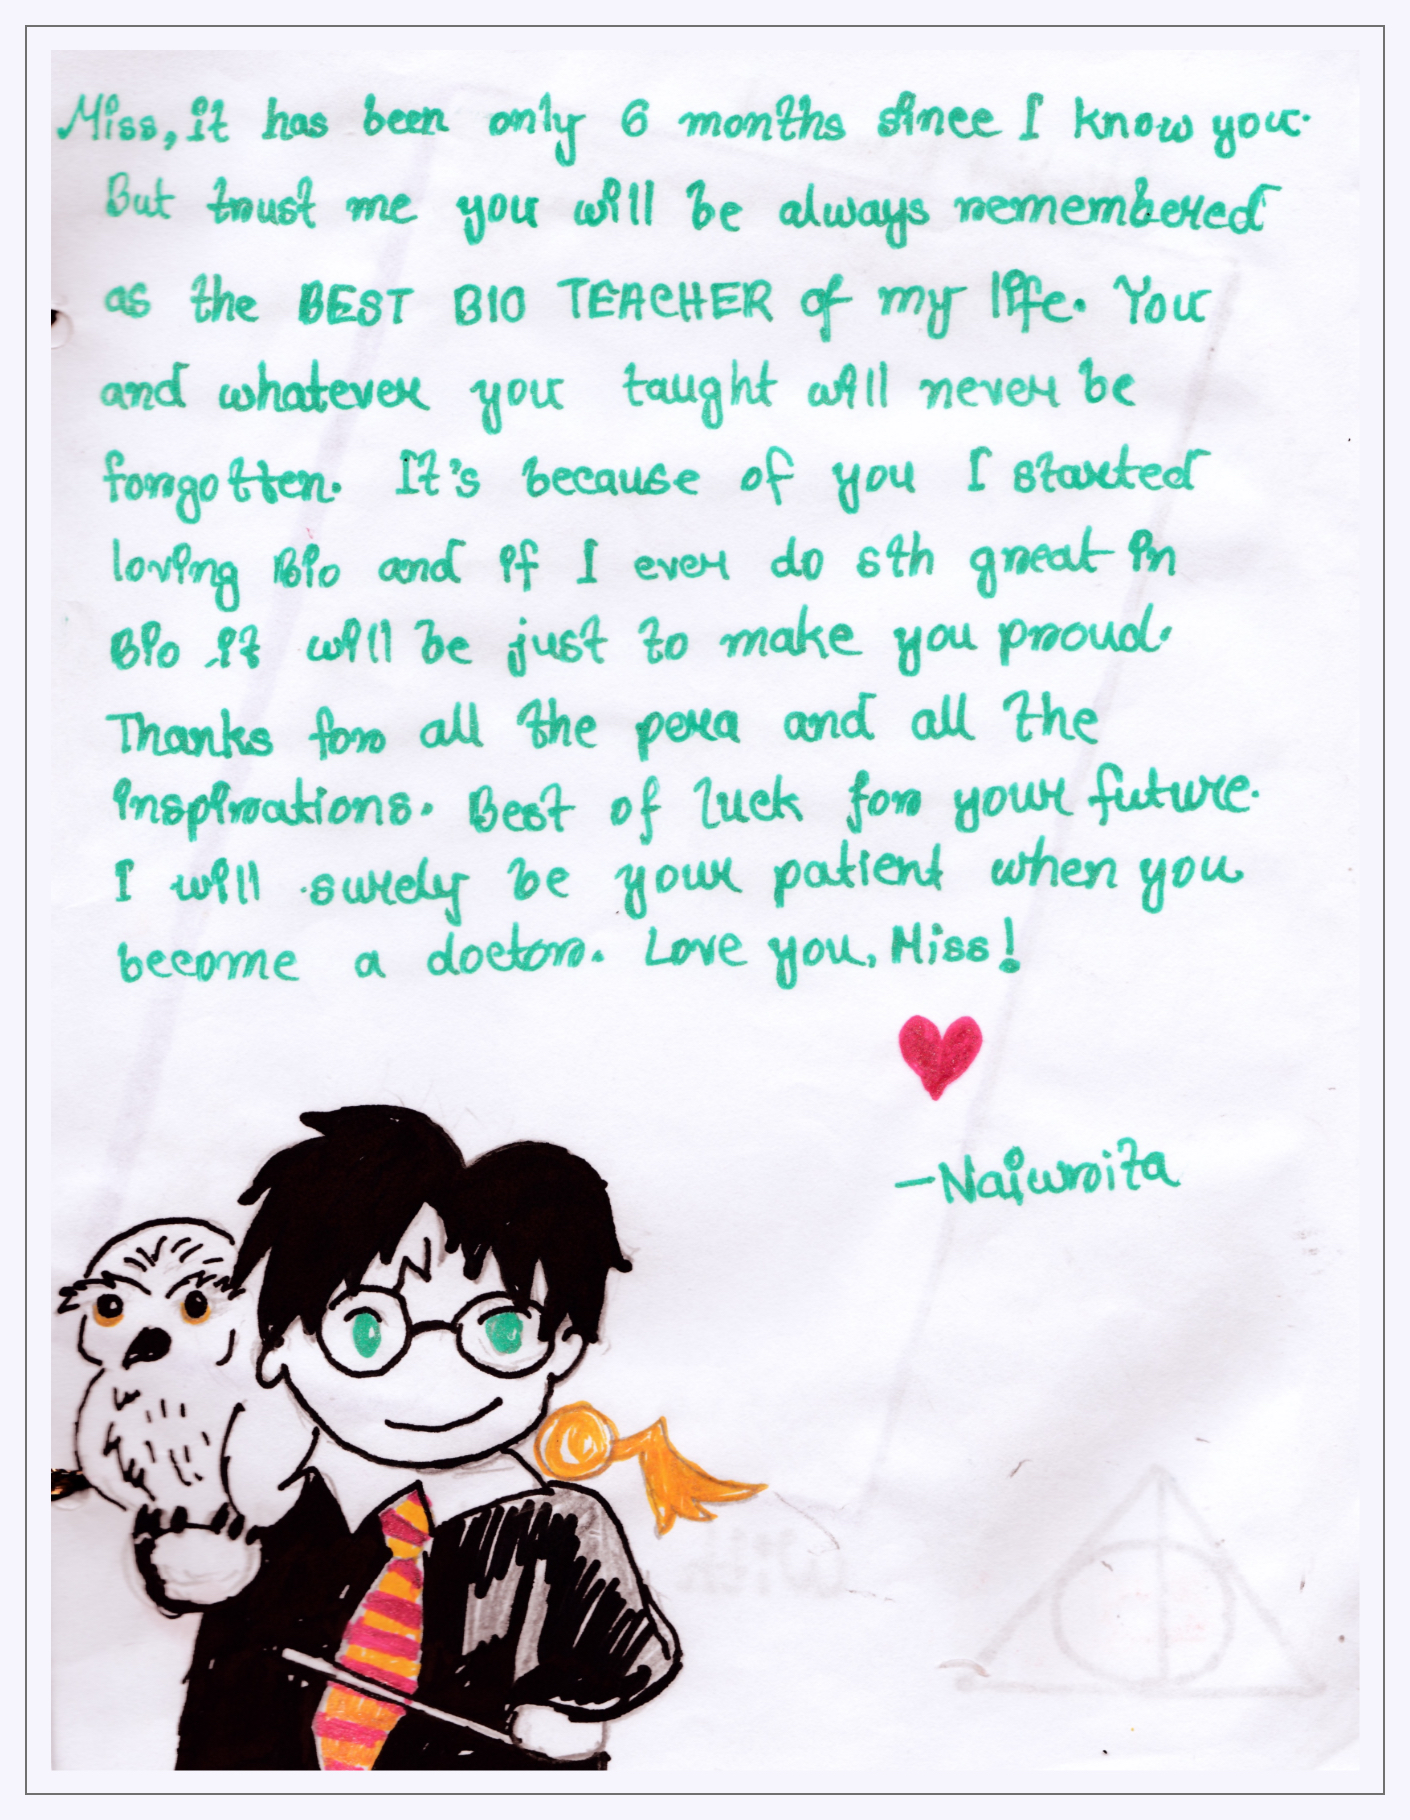 Miss, it has been only 6 months since I know you.
But trust me you will be always remembered
as the BEST BIO TEACHER of my life. You
and whatever you taught will never be
forgotten. It's because of you I started
loving Bio and if I ever do sth great in
Bio it will be just to make you proud.
Thanks for all the pera and all the
inspirations. Best of luck for your future.
I will surely be your patient when you
become a doctor. Love you, Miss!
—Naiwrita
with